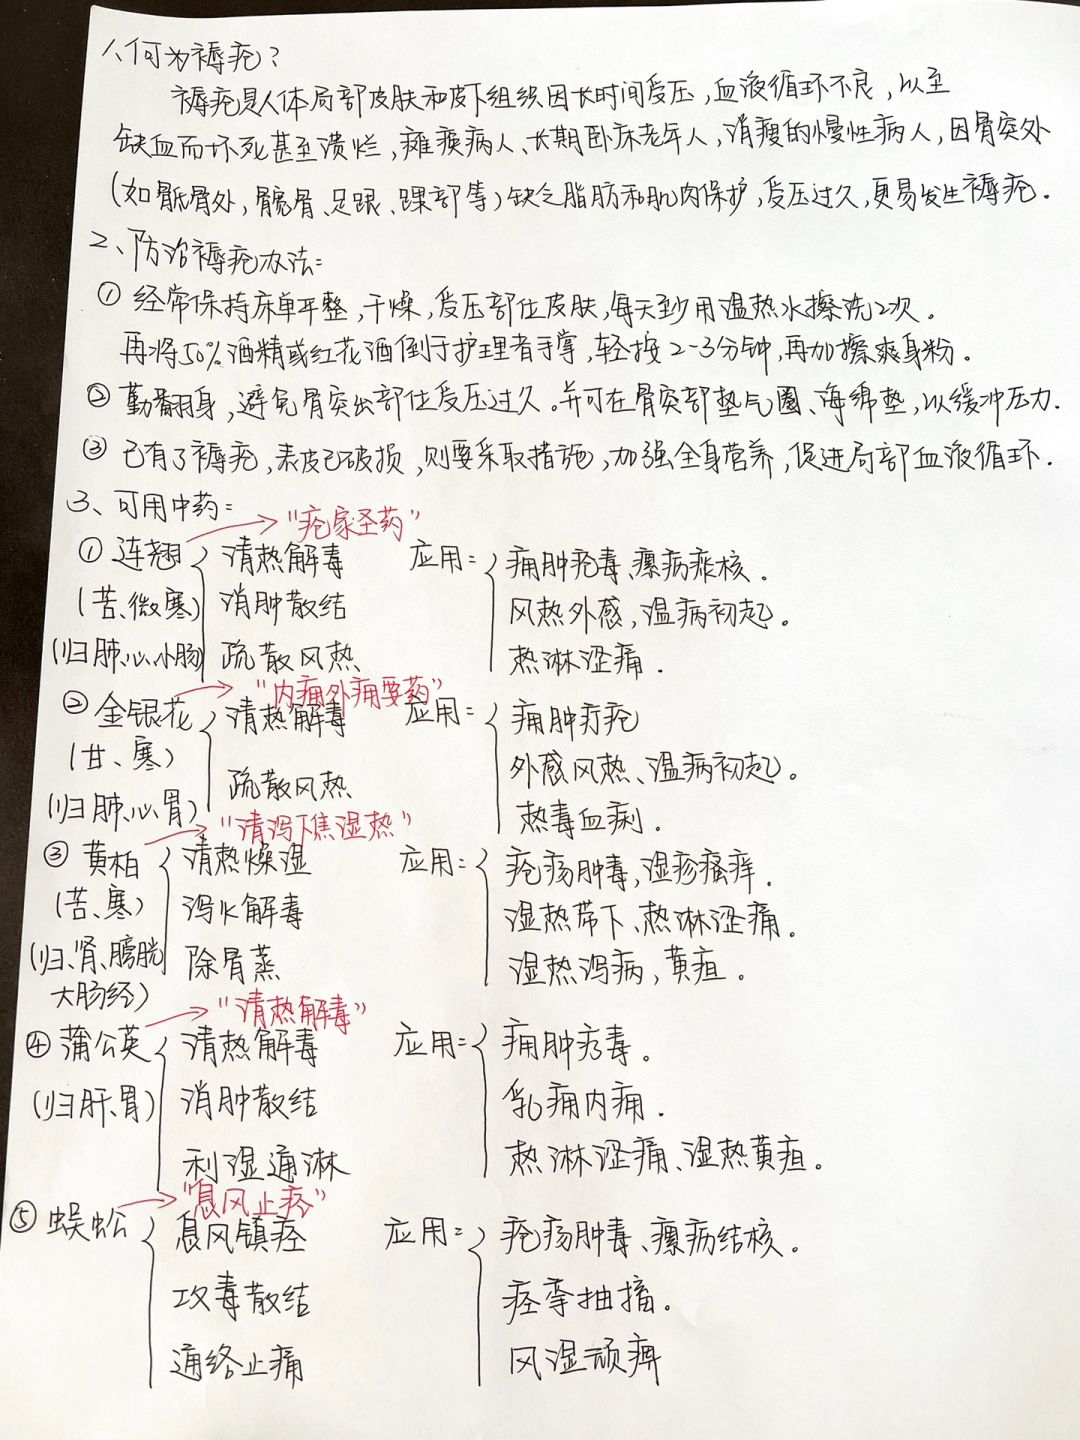 1、何为褥疮?
褥疮是人体局部皮肤和皮下组织因长时间受压,血液循环不良,以至
缺血而坏死甚至溃烂,瘫痪病人、长期卧床老年人,消瘦的慢性病人,因骨突处
(如骶骨处,髋骨、足跟、踝部等)缺乏脂肪和肌肉保护,受压过久,更易发生褥疮.
2、防治褥疮办法:
① 经常保持床单平整,干燥,受压部位皮肤,每天至少用温热水擦洗2次.
再将50%酒精或红花酒倒于护理者手掌,轻按2-3分钟,再加擦爽身粉.
② 勤翻身,避免骨突出部位受压过久.并可在骨突部垫气圈、海绵垫,以缓冲压力.
③ 已有了褥疮,表皮已破损,则要采取措施,加强全身营养,促进局部血液循环.
3、可用中药:
"疮家圣药"
① 连翘 清热解毒 应用: 痈肿疮毒、瘰疬痰核.
(苦、微寒) 消肿散结 风热外感,温病初起。
(归肺、心、小肠) 疏散风热、 热淋涩痛.
"内痈外痈要药"
② 金银花 清热解毒 应用: 痈肿疔疮
(甘、寒) 外感风热、温病初起。
(归肺、心、胃) 疏散风热 热毒血痢.
"清泻下焦湿热"
③ 黄柏 清热燥湿 应用: 疮疡肿毒,湿疹瘙痒.
(苦、寒) 泻火解毒 湿热带下、热淋涩痛.
(归、肾、膀胱 除骨蒸 湿热泻痢,黄疸.
大肠经)
"清热解毒"
④ 蒲公英 清热解毒 应用: 痈肿疮毒。
(归肝、胃) 消肿散结 乳痈内痈.
利湿通淋 热淋涩痛、湿热黄疸。
"息风止痉"
⑤ 蜈蚣 息风镇痉 应用: 疮疡肿毒、瘰疬结核.
攻毒散结 痉挛抽搐.
通络止痛 风湿顽痹